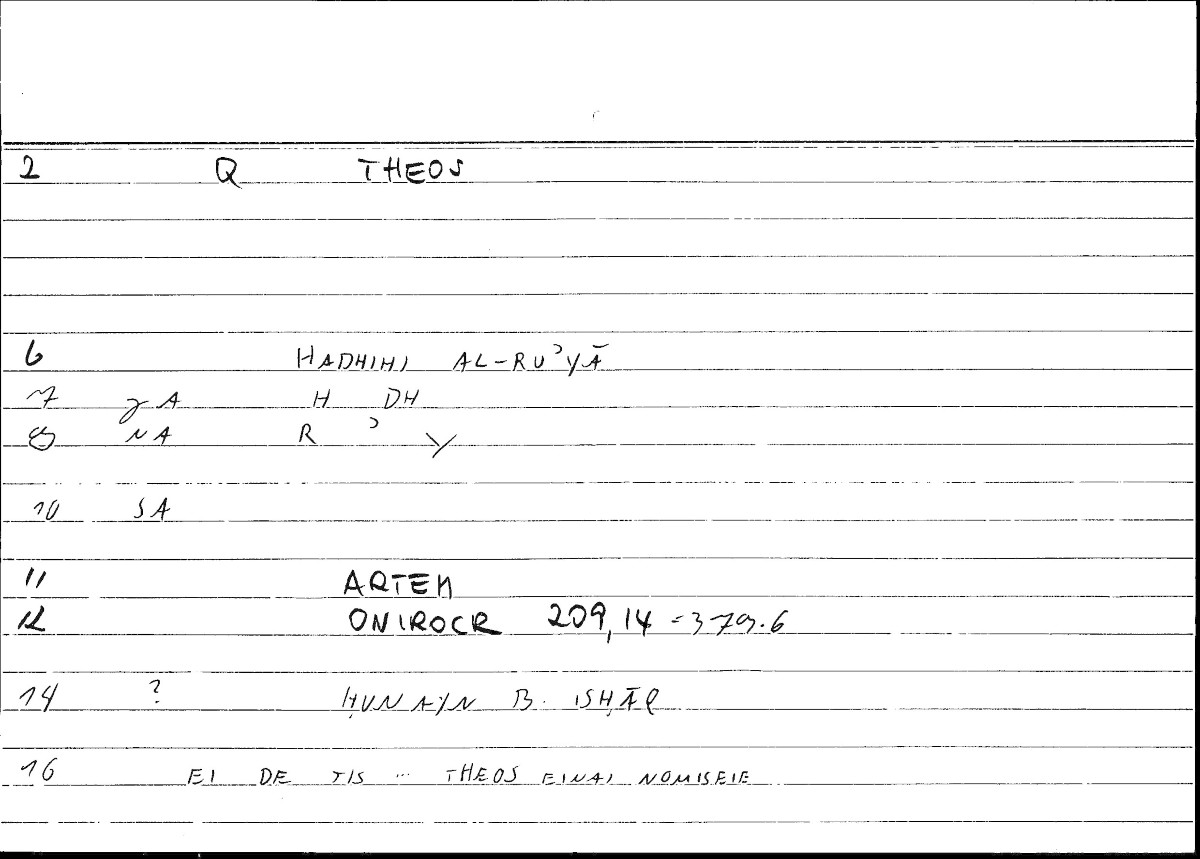 2 Q THEOS
6 HADHIHI AL-RUʾYĀ
7 A H DH
8 NA R ʾ Y
10 SA
11 ARTEM
12 ONIROCR 209,14 = 379.6
14 ? ḤUNAYN B. ISḤĀQ
16 EI DE TIS ... THEOS EINAI NOMISEIE